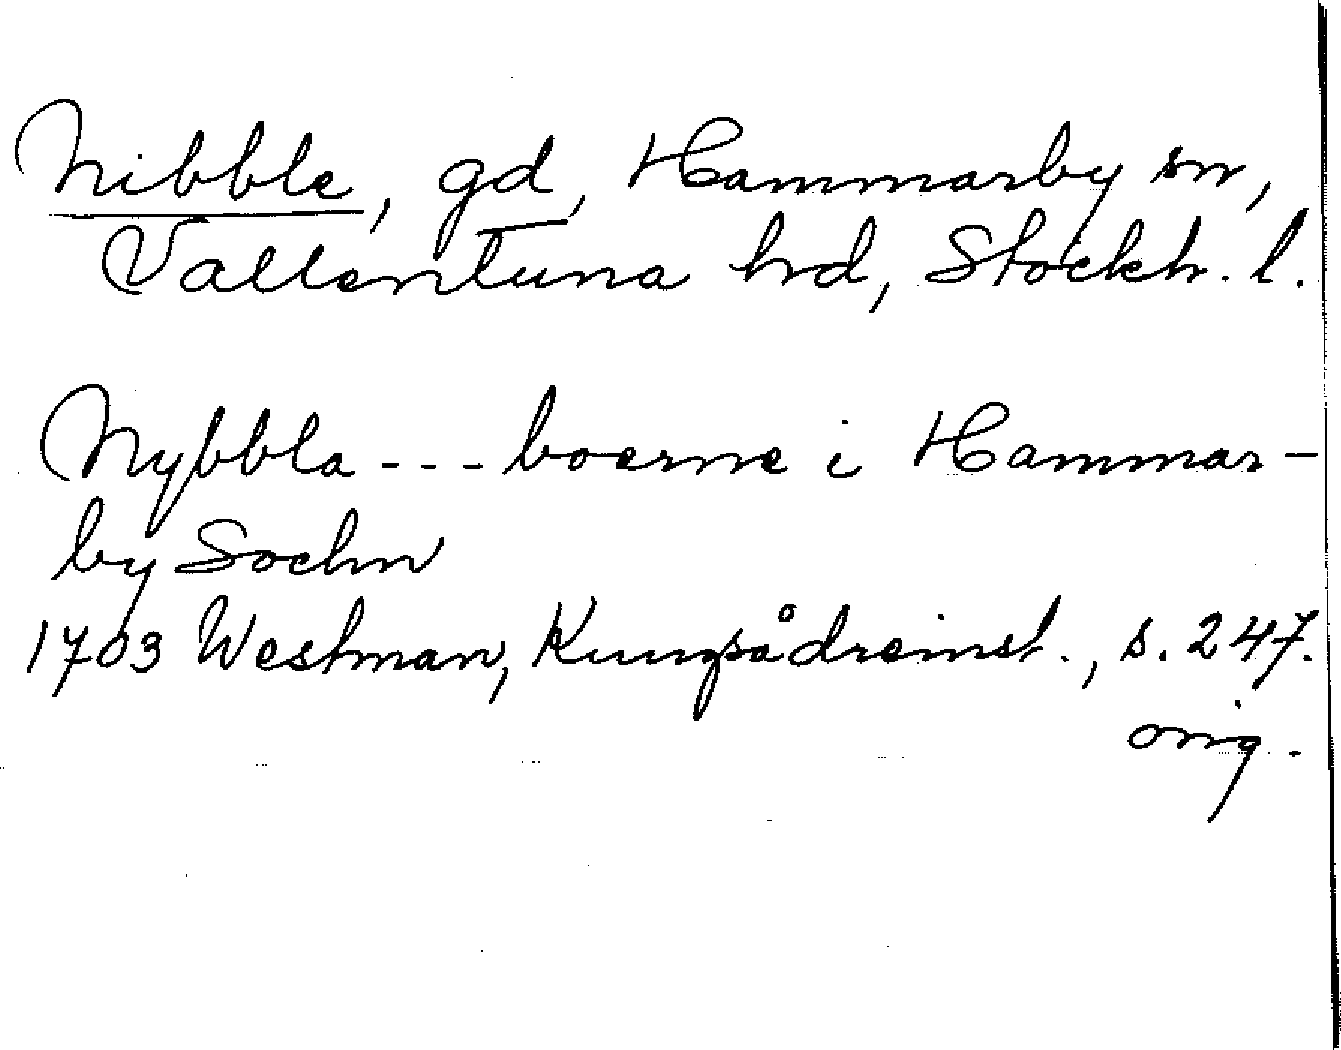 Nibble, gd, Hammarby sn,
Vallentuna hd, Stockh. l.
Nybbla --- boerne i Hammar-
by Sochn
1703 Westman, Kungsådreinst., s. 247.
orig.